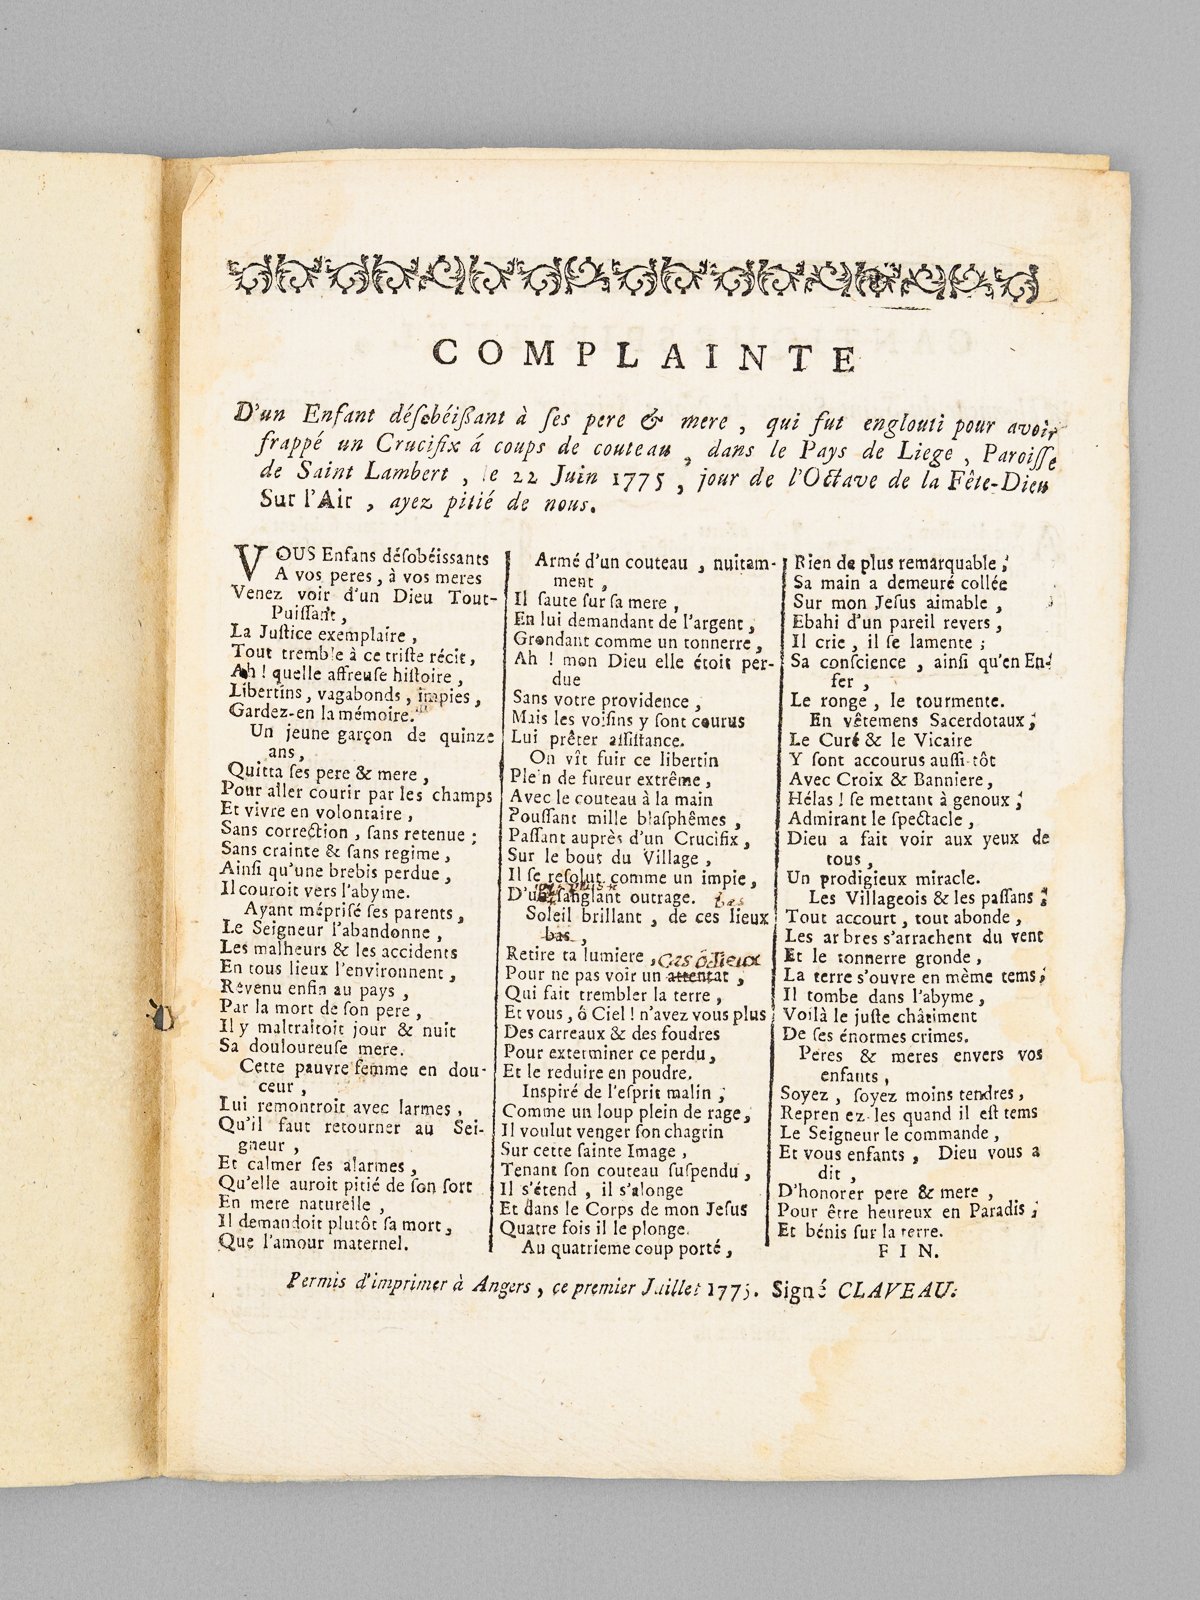 COMPLAINTE
D'un Enfant désobéißant à ses pere & mere, qui fut englouti pour avoir
frappé un Crucifix á coups de couteau, dans le Pays de Liege, Paroisse
de Saint Lambert, le 22 Juin 1775, jour de l'Octave de la Fête-Dieu
Sur l'Air, ayez pitié de nous.
VOUS Enfans désobéissants
A vos peres, à vos meres
Venez voir d'un Dieu Tout-
Puissant,
La Justice exemplaire,
Tout tremble à ce triste récit,
Ah! quelle affreuse histoire,
Libertins, vagabonds, impies,
Gardez-en la mémoire.
Un jeune garçon de quinze
ans,
Quitta ses pere & mere,
Pour aller courir par les champs
Et vivre en volontaire,
Sans correction, sans retenue;
Sans crainte & sans regime,
Ainsi qu'une brebis perdue,
Il couroit vers l'abyme.
Ayant méprisé ses parents,
Le Seigneur l'abandonne,
Les malheurs & les accidents
En tous lieux l'environnent,
Revenu enfin au pays,
Par la mort de son pere,
Il y maltraitoit jour & nuit
Sa douloureuse mere.
Cette pauvre femme en dou-
ceur,
Lui remontroit avec larmes,
Qu'il faut retourner au Sei-
gneur,
Et calmer ses alarmes,
Qu'elle auroit pitié de son sort
En mere naturelle,
Il demandoit plutôt sa mort,
Que l'amour maternel.
Armé d'un couteau, nuitam-
ment,
Il saute sur sa mere,
En lui demandant de l'argent,
Grondant comme un tonnerre,
Ah! mon Dieu elle étoit per-
due
Sans votre providence,
Mais les voisins y sont courus
Lui prêter assistance.
On vît fuir ce libertin
Plein de fureur extrême,
Avec le couteau à la main
Poussant mille blasphêmes,
Passant auprès d'un Crucifix,
Sur le bout du Village,
Il se resolut comme un impie,
D'un sanglant outrage. bas
Soleil brillant, de ces lieux
bas,
Retire ta lumiere, Cas odieux
Pour ne pas voir un attentat,
Qui fait trembler la terre,
Et vous, ô Ciel! n'avez vous plus
Des carreaux & des foudres
Pour exterminer ce perdu,
Et le reduire en poudre.
Inspiré de l'esprit malin;
Comme un loup plein de rage,
Il voulut venger son chagrin
Sur cette sainte Image,
Tenant son couteau suspendu,
Il s'étend, il s'alonge
Et dans le Corps de mon Jesus
Quatre fois il le plonge.
Au quatrieme coup porté,
Rien de plus remarquable;
Sa main a demeuré collée
Sur mon Jesus aimable,
Ebahi d'un pareil revers,
Il crie, il se lamente;
Sa conscience, ainsi qu'en En-
fer,
Le ronge, le tourmente.
En vêtemens Sacerdotaux;
Le Curé & le Vicaire
Y sont accourus aussi-tôt
Avec Croix & Banniere,
Hélas! se mettant à genoux;
Admirant le spectacle,
Dieu a fait voir aux yeux de
tous,
Un prodigieux miracle.
Les Villageois & les passans;
Tout accourt, tout abonde,
Les arbres s'arrachent du vent
Et le tonnerre gronde,
La terre s'ouvre en mème tems;
Il tombe dans l'abyme,
Voilà le juste châtiment
De ses énormes crimes.
Peres & meres envers vos
enfants,
Soyez, soyez moins tendres,
Reprenez-les quand il est tems
Le Seigneur le commande,
Et vous enfants, Dieu vous a
dit,
D'honorer pere & mere,
Pour être heureux en Paradis;
Et bénis sur la terre.
FIN.
Permis d'imprimer à Angers, ce premier Juillet 1775. Signé CLAVEAU.